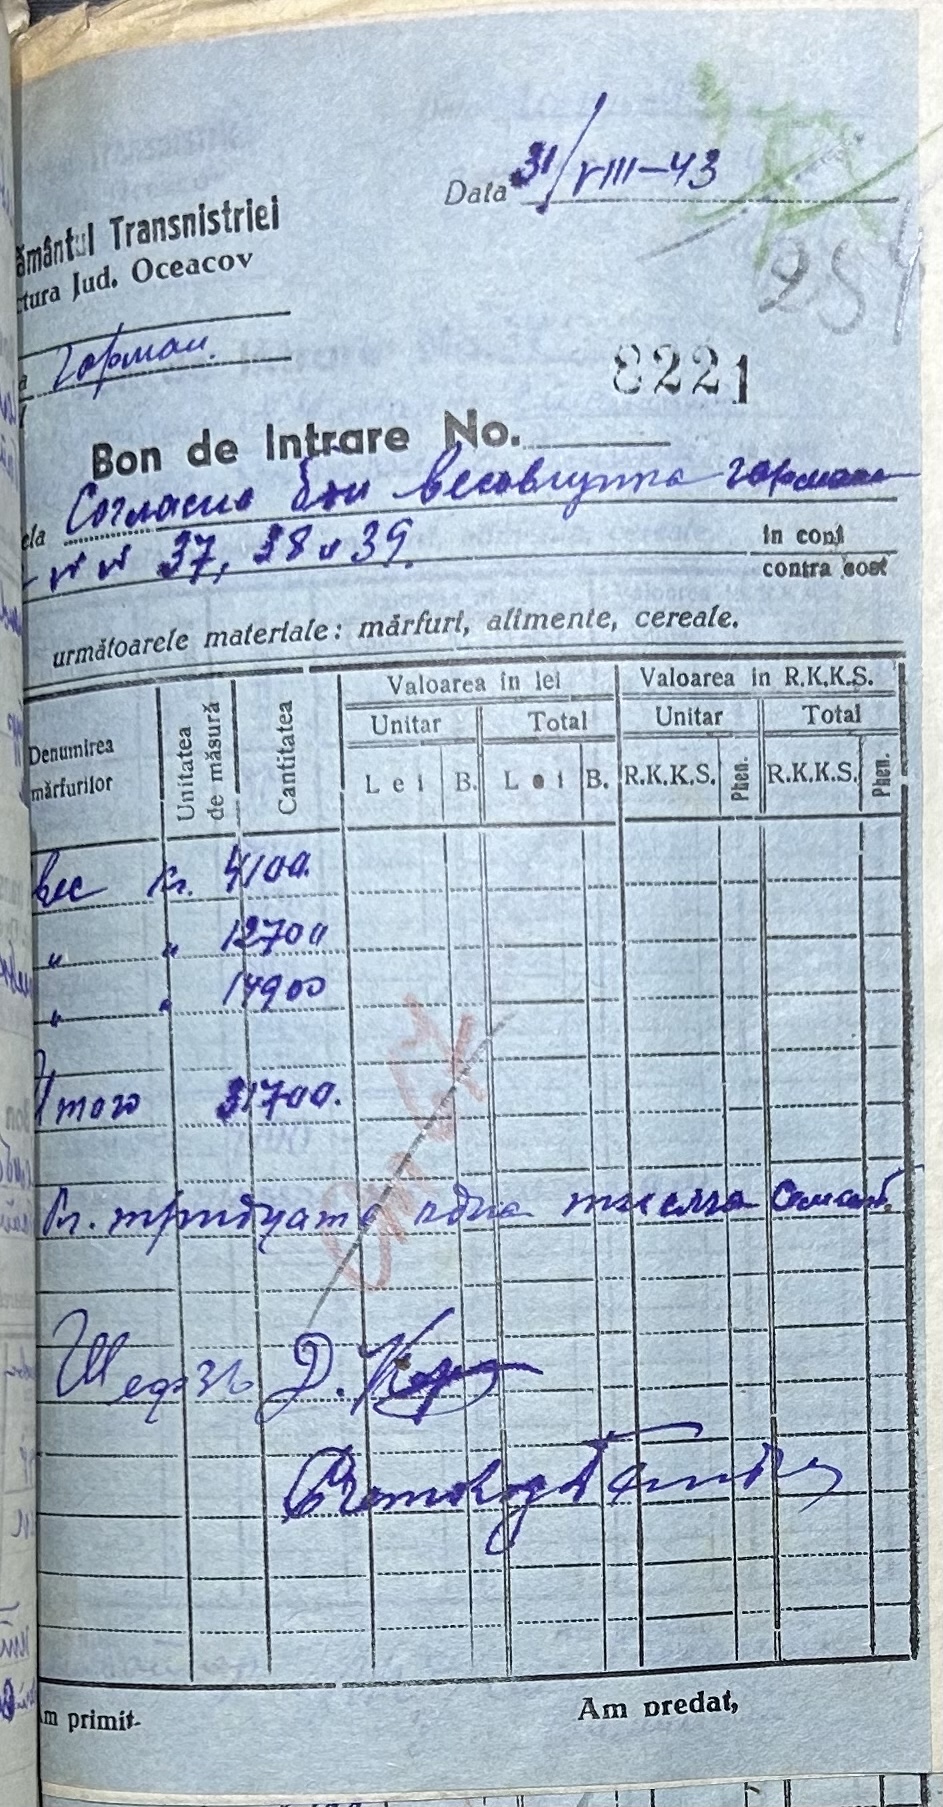 Data 31/VIII-43
ământul Transnistriei
ctura Jud. Oceacov
951
a Горман.
8221
Bon de Intrare No.
ela Согласно бон весовщика Горман
№ № 37, 38 и 39.
in cont
contra cost
următoarele materiale: mărfuri, alimente, cereale.
Denumirea mărfurilor Unitatea de măsură Cantitatea Valoarea în lei Valoarea in R.K.K.S.
Unitar Total Unitar Total
Lei B. Lei B. R.K.K.S. Phen. R.K.K.S. Phen.
вес кг. 4100.
" " 12700
" " 14900
Итого 31700.
Кг. тридцать одна тысяча семьсот
Шеф Д.
m primit.
Am predat,